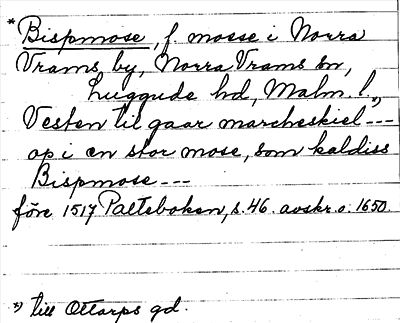 * Bispmose, f. mosse i Norra
Vrams by, Norra Vrams sn,
Luggude hd, Malm. l.*)
Vesten til gaar marcheskiel ---
op i en stor mose, som kaldiss
Bispmose ---
före 1517 Palteboken, s. 46. avskr. o. 1650.
*) till Ottarps gd.